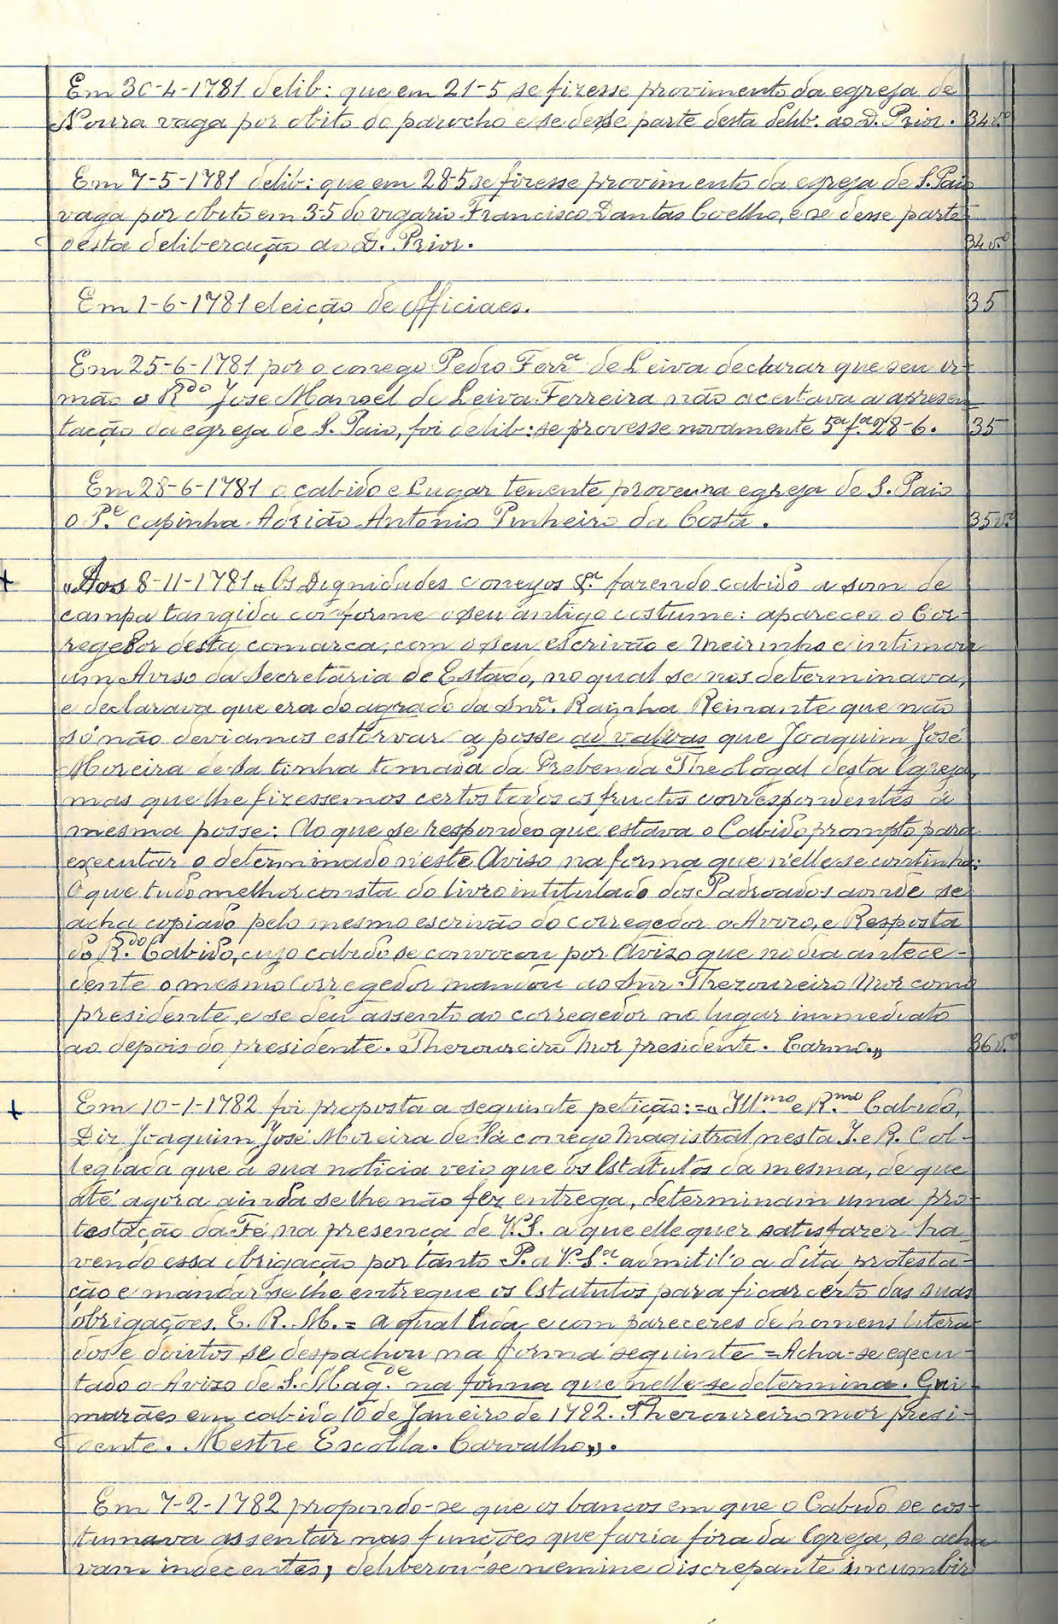 Em 30-4-1781 delib: que em 21-5 se fizesse provimento da egreja de
Moura vaga por obito do parocho e se desse parte desta delib. ao D. Prior. 34v.º
Em 7-5-1781 delib: que em 28-5 se fizesse provimento da egreja de S. Paio
vaga por obito em 3-5 do vigario Francisco Dantas Coelho, e se desse parte
desta deliberação ao D. Prior. 34v.º
Em 1-6-1781 eleição de officiaes. 35
Em 25-6-1781 por o conego Pedro Ferr.ª de Leiva declarar que seu ir-
mão o R.do José Manoel de Leiva Ferreira não aceitava a apresen-
tação da egreja de S. Paio, foi delib: se provesse novamente 5ª f.ª 28-6. 35
Em 28-6-1781 o cabido e Lugar tenente proveu na egreja de S. Paio
o P.e capinha Adrião Antonio Pinheiro da Costa. 35v.º
+ "Aos 8-11-1781" Os Dignidades conegos &.ª fazendo cabido a som de
campa tangida conforme o seu antigo costume: apareceo o Cor-
regedor desta comarca, com o seu escrivão e Meirinho e intimou
um Aviso da Secretária de Estado, no qual se nos determinava,
e declarava que era do agrado da Snr.ª Raynha Reinante que não
só não deviamos estorvar a posse ad valvas que Joaquim José
Moreira de Sa tinha tomado da Prebenda Theologal desta Egreja,
mas que lhe fizessemos certos todos os fructos correspondentes á
mesma posse: Ao que se respondeo que estava o Cabido prompto para
executar o determinado n'este Aviso na forma que n'elle se continha:
O que tudo melhor consta do livro intitulado dos Padroados aonde se
acha copiado pelo mesmo escrivão do corregedor o Avizo, e Resposta
do R.do Cabido, cujo cabido se convocou por Avizo que no dia antece-
dente o mesmo Corregedor mandou ao Snr Thezoureiro Mor como
presidente, e se deu assento ao corregedor no lugar immediato
ao depois do presidente. Thezoureiro Mor presidente. Carmo." 36v.º
+ Em 10-1-1782 foi proposta a seguinte petição: = "Ill.mo e R.mo Cabido,
Diz Joaquim José Moreira de Sá conego Magistral nesta I. e R. Col-
legiada que á sua noticia veio que os Estatutos da mesma, de que
até agora ainda se lhe não fez entrega, determinam uma pro-
testação da Fé na presença de V.S. a que elle quer satisfazer ha-
vendo essa obrigação por tanto P. a V. S.ª admitil'o a dita protesta-
ção e mandar se lhe entregue os Estatutos para ficar certo das suas
obrigações. E. R. M. = a qual lida, e com pareceres de homens litera-
dos e doutos se despachou na forma seguinte = Acha-se execu-
tado o Avizo de S. Mag.de na fórma que nelle se determina. Gui-
marães em cabido 10 de Janeiro de 1782. Thezoureiro mor presi-
dente. Mestre Escolla. Carvalho".
Em 7-2-1782 propondo-se que os bancos em que o Cabido se cos-
tumava assentar nas funcções que fazia fóra da Egreja, se acha-
vam indecentes, deliberou-se nemine discrepante incumbir